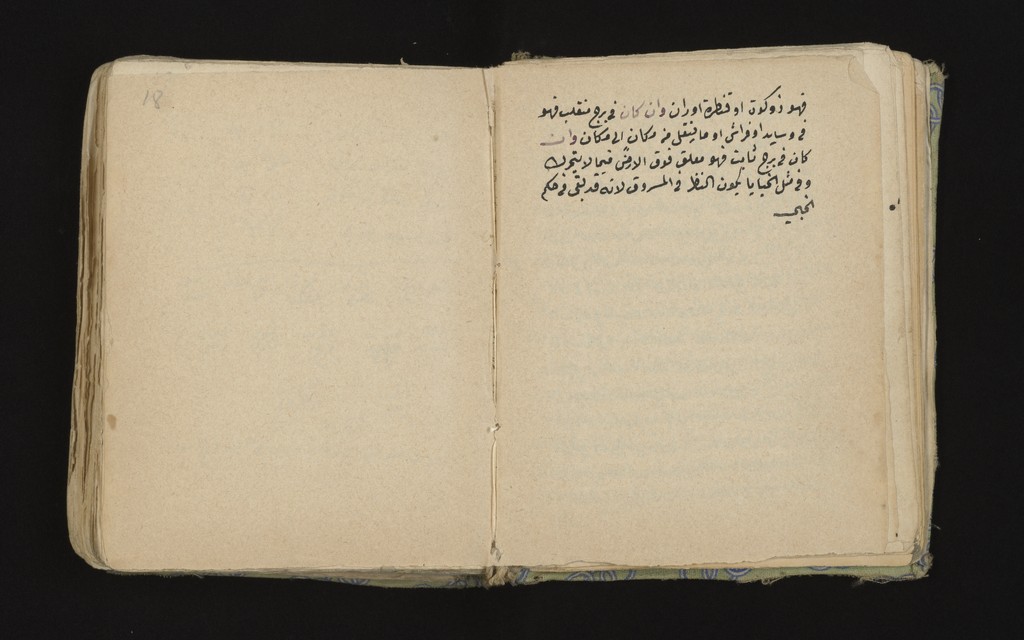 فهو ذو كوة او قنطرة او ران وان كان في برج منقلب فهو
في وسايد او فراش او ما ينتقل من مكان الى مكان وان
كان في برج ثابت فهو معلق فوق الارض فيما لا يتحرك
وفي مثل الخبايا يكون النظر في المسروق لانه قد بقي في حكم
الخبي
18